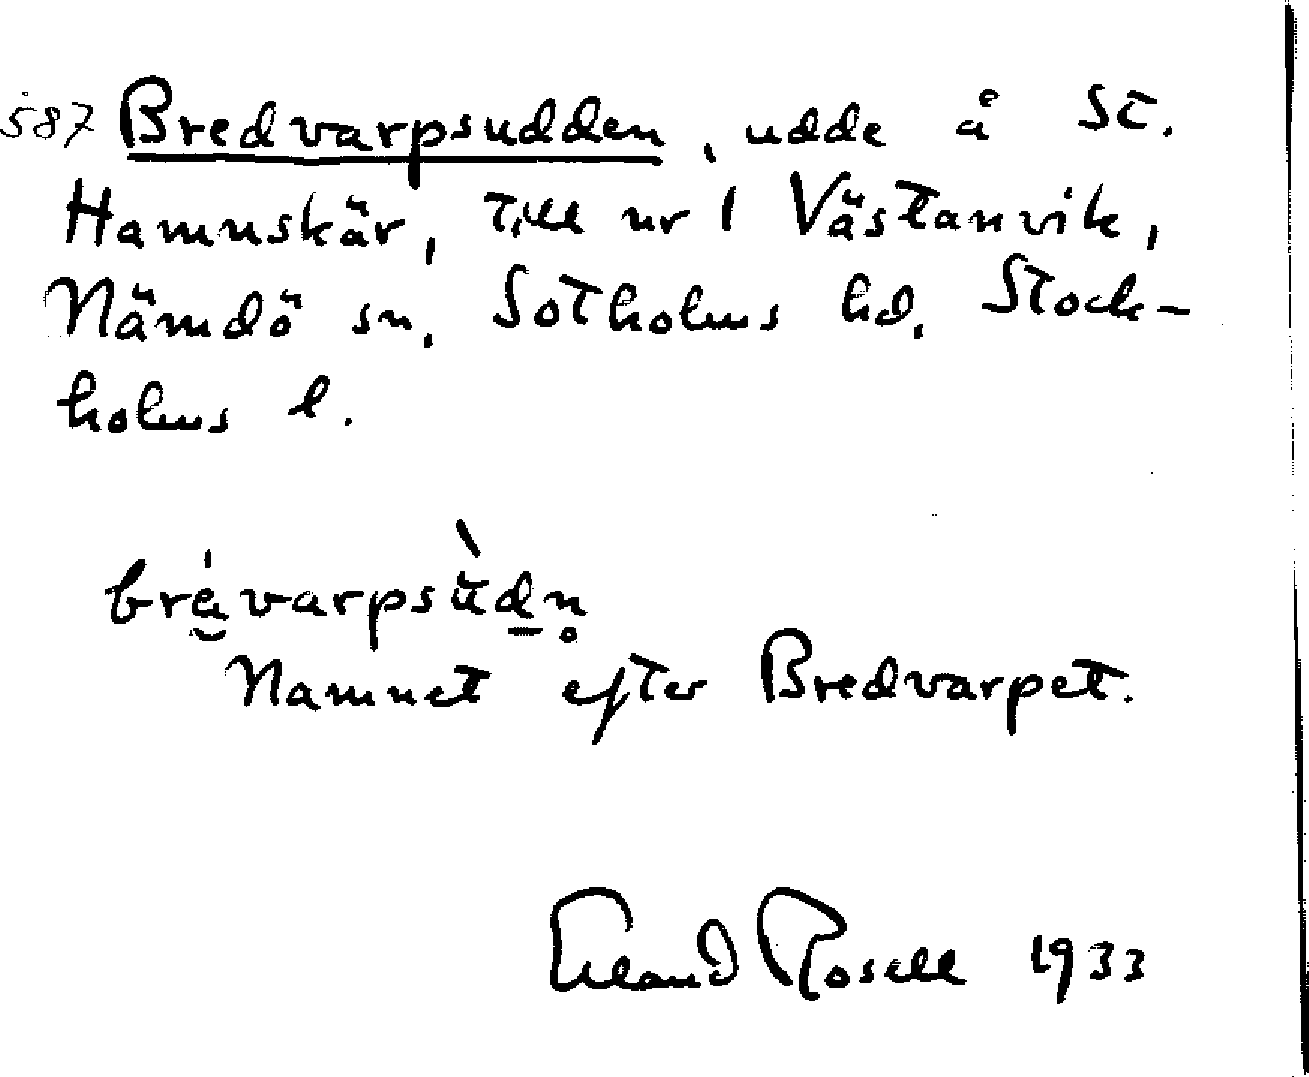 587 Bredvarpsudden, udde å St.
Hamnskär, till nr 1 Västanvik,
Nämdö sn, Sotholms hd, Stock-
holms l.
brévarpsùdn̥
Namnet efter Bredvarpet.
Erland Rosell 1933